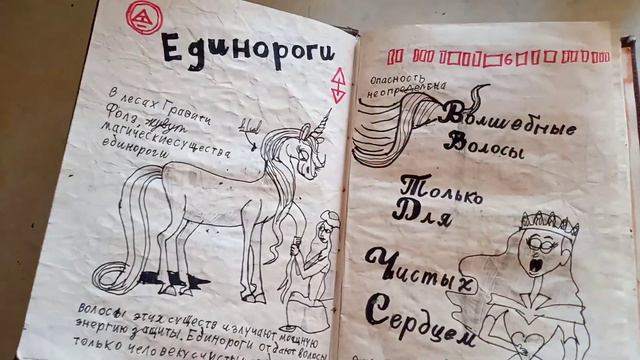 Единороги
В лесах Гравити
Фолз, живут
магические существа
единороги
Волосы этих существ излучают мощную
энергию защиты. Единороги отдают волосы
только человеку с чисты
Опасность
неопределена
Волшебные
Волосы
Только
Для
Чистых
Сердцем